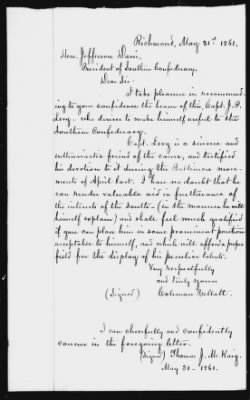 Richmond, May 31st 1861.
Hon. Jefferson Davis,
President of Southern Confederacy.
Dear Sir:
I take pleasure in recommend-
ing to your confidence the bearer of this, Capt. J. P.
Levy, who desires to make himself useful to the
Southern Confederacy.
Capt. Levy is a sincere and
enthusiastic friend of the cause, and testified
his devotion to it during the Baltimore move-
ments of April last. I have no doubt that he
can render valuable aid in furtherance of
the interests of the South - (in the manner he will
himself explain) and shall feel much gratified
if you can place him in some prominent position
acceptable to himself, and which will afford a proper
field for the display of his peculiar talents.
Very respectfully
and truly yours
(Signed) Coleman Yellott.
I can cheerfully and confidently
concur in the foregoing letter.
(Signed) Thomas J. McKaig.
May 31 - 1861.